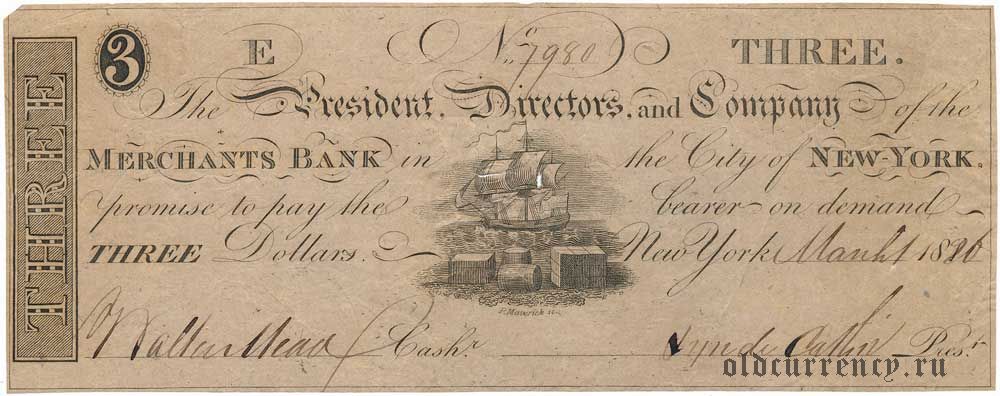 THREE
3 E No. 7980 THREE.
The President, Directors, and Company of the
MERCHANTS BANK in the City of NEW-YORK.
promise to pay the bearer on demand
THREE Dollars. New York March 1 1826
P. Maverick sc.
Walter Mead Cashr. Lynde Catlin Prest.
oldcurrency.ru